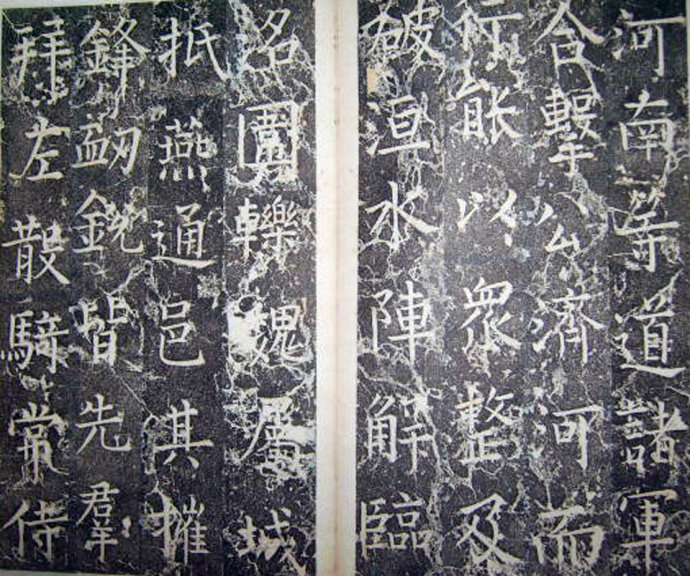 河南等道諸軍
合擊公濟河而
行能以衆整及
破洹水陣解臨
名圍轢魏屬城
抵燕通邑其摧
鋒衂銳皆先羣
拜左散騎常侍